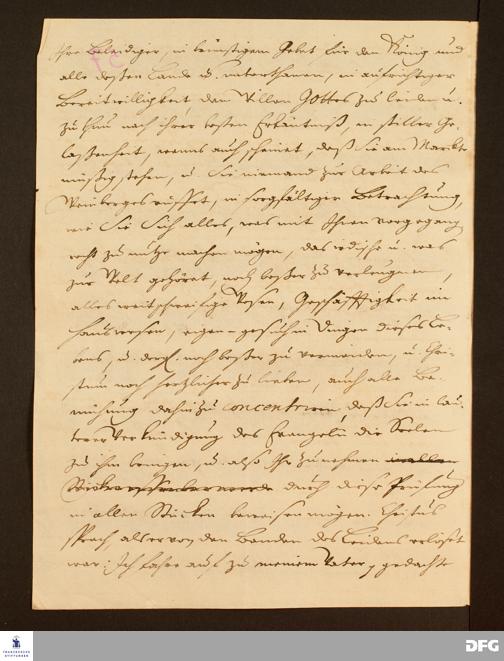 Ihre Beleidiger, in brünstigem Gebet für den König und
alle dessen Lande u. Unterthanen, in aufrichtiger
Bereitwilligkeit, den Willen Gottes zu leiden u.
zu thun nach ihrer besten Erkäntniß, in stiller Ge-
laßenheit, wenns auch scheinet, daß Sie am Markte
müßig stehen, u. Sie niemand zur Arbeit des
Weinberges ruffet, in sorgfältiger Betrachtung,
wie Sie Sich alles, was mit Ihnen vorgegangen
recht zu nutze machen mögen, das irdische u. was
zur Welt gehöret, noch beßer zu verleugnen,
alles weitschweifige Wesen, Geschäfftigkeit im
Hauswesen, eigen-gesuch in Dingen dieses Le-
bens, u. dergl. noch beßer zu vermeiden, u. Chri-
stum noch hertzlicher zu lieben, auch alle Be-
mühung dahin zu concentriren, daß Sie in lau-
terer Verkündigung des Evangelii die Seelen
zu ihm bringen, u. also Ihr zunehmen
durch diese Prüfung
in allen Stücken beweisen mögen. Christus
sprach, als er von den Banden des Leidens erlöset
war: Ich fahre auf zu meinem Vater, gedachte
FRANCKESCHE
STIFTUNGEN
DFG